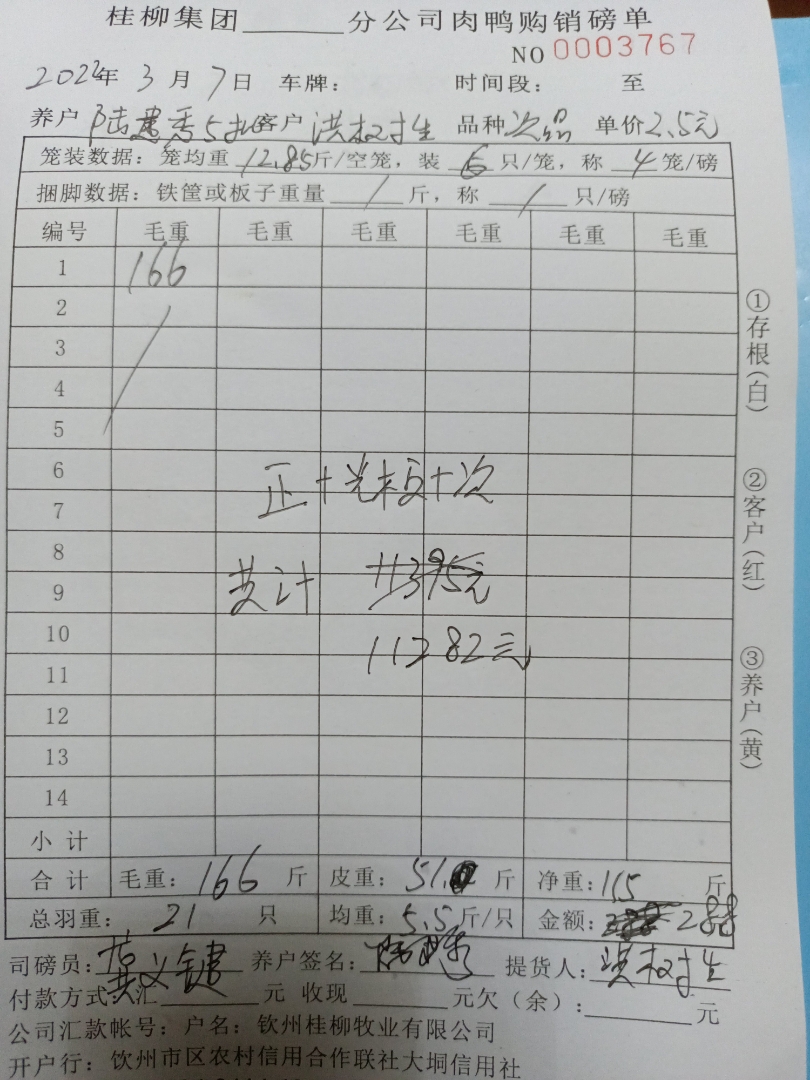 桂柳集团______分公司肉鸭购销磅单
NO 0003767
2022年 3月 7日 车牌： 时间段： 至
养户 陆 秀 5批 客户 洪权村生 品种 次品 单价 2.5元
笼装数据：笼均重 12.85 斤/空笼，装 6 只/笼，称 4 笼/磅
捆脚数据：铁筐或板子重量 / 斤，称 / 只/磅
编号 毛重 毛重 毛重 毛重 毛重 毛重
1 166
2
3
4
5
6
7
正+光板+次
8
9
共计
10
11282元
11
12
13
14
小计
合计 毛重：166 斤 皮重：51. 斤 净重：115 斤
总羽重：21 只 均重：5.5 斤/只 金额：288
司磅员： 义键 养户签名： 提货人：洪权村生
付款方式：汇______元 收现______元欠（余）：______元
公司汇款帐号：户名：钦州桂柳牧业有限公司
开户行：钦州市区农村信用合作联社大垌信用社
①存根（白）
②客户（红）
③养户（黄）